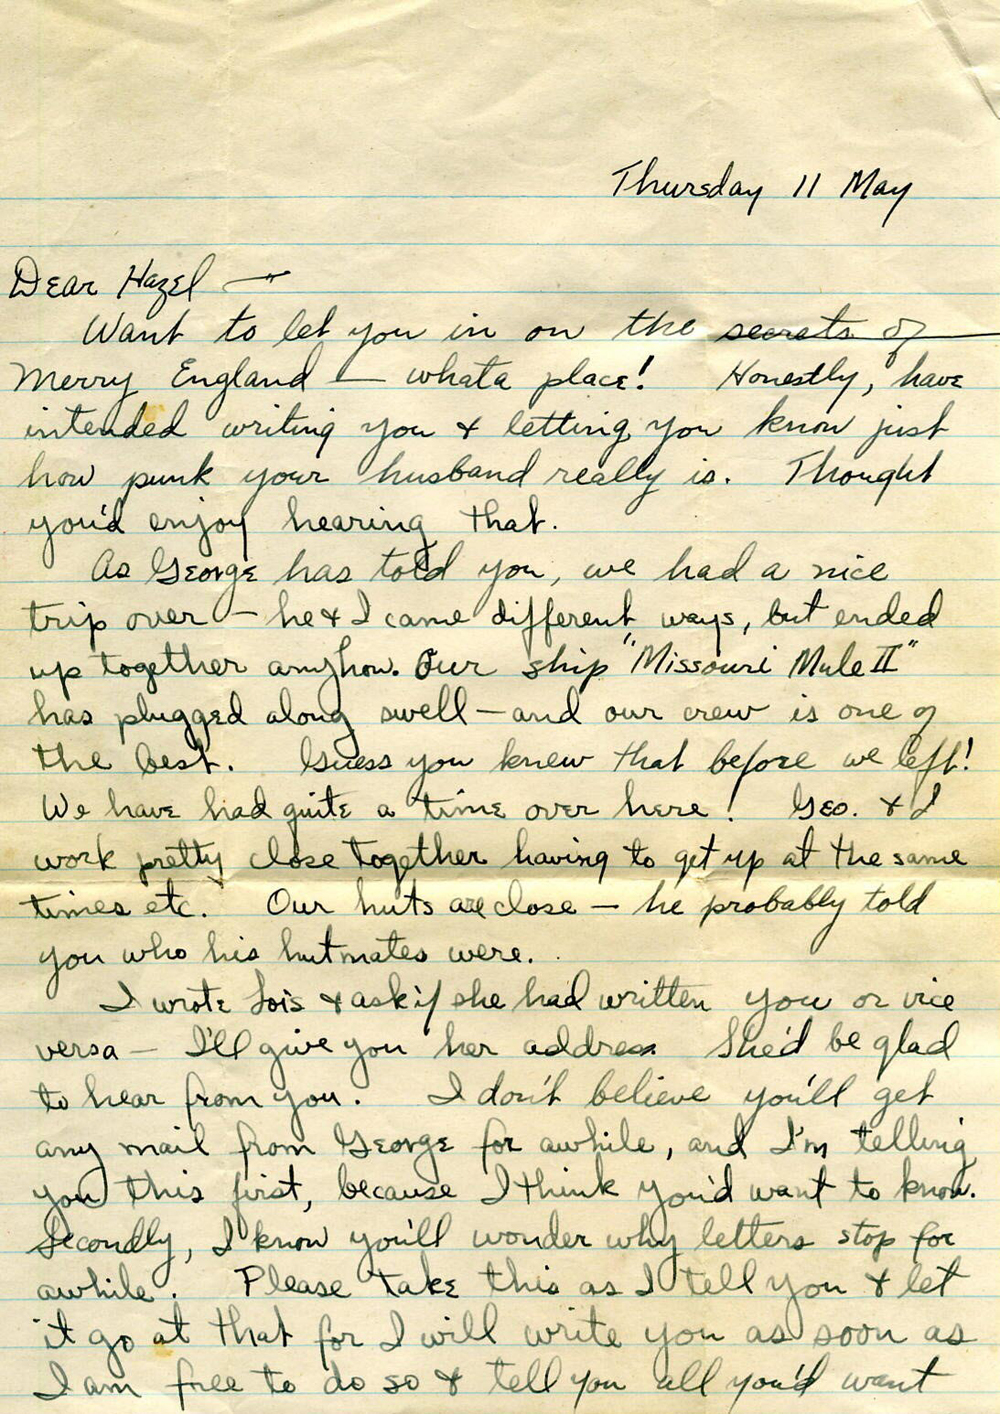 Thursday 11 May
Dear Hazel —
Want to let you in on the secrets of
Merry England — whata place! Honestly, have
intended writing you & letting you know just
how punk your husband really is. Thought
you'd enjoy hearing that.
As George has told you, we had a nice
trip over — he & I came different ways, but ended
up together anyhow. Our ship "Missouri Mule II"
has plugged along swell — and our crew is one of
the best. Guess you knew that before we left!
We have had quite a time over here! Geo. & I
work pretty close together having to get up at the same
times etc. Our huts are close — he probably told
you who his hutmates were.
I wrote Lois & ask if she had written you or vice
versa — I'll give you her address She'd be glad
to hear from you. I don't believe you'll get
any mail from George for awhile, and I'm telling
you this first, because I think you'd want to know.
Secondly, I know you'll wonder why letters stop for
awhile. Please take this as I tell you & let
it go at that for I will write you as soon as
I am free to do so & tell you all you'd want